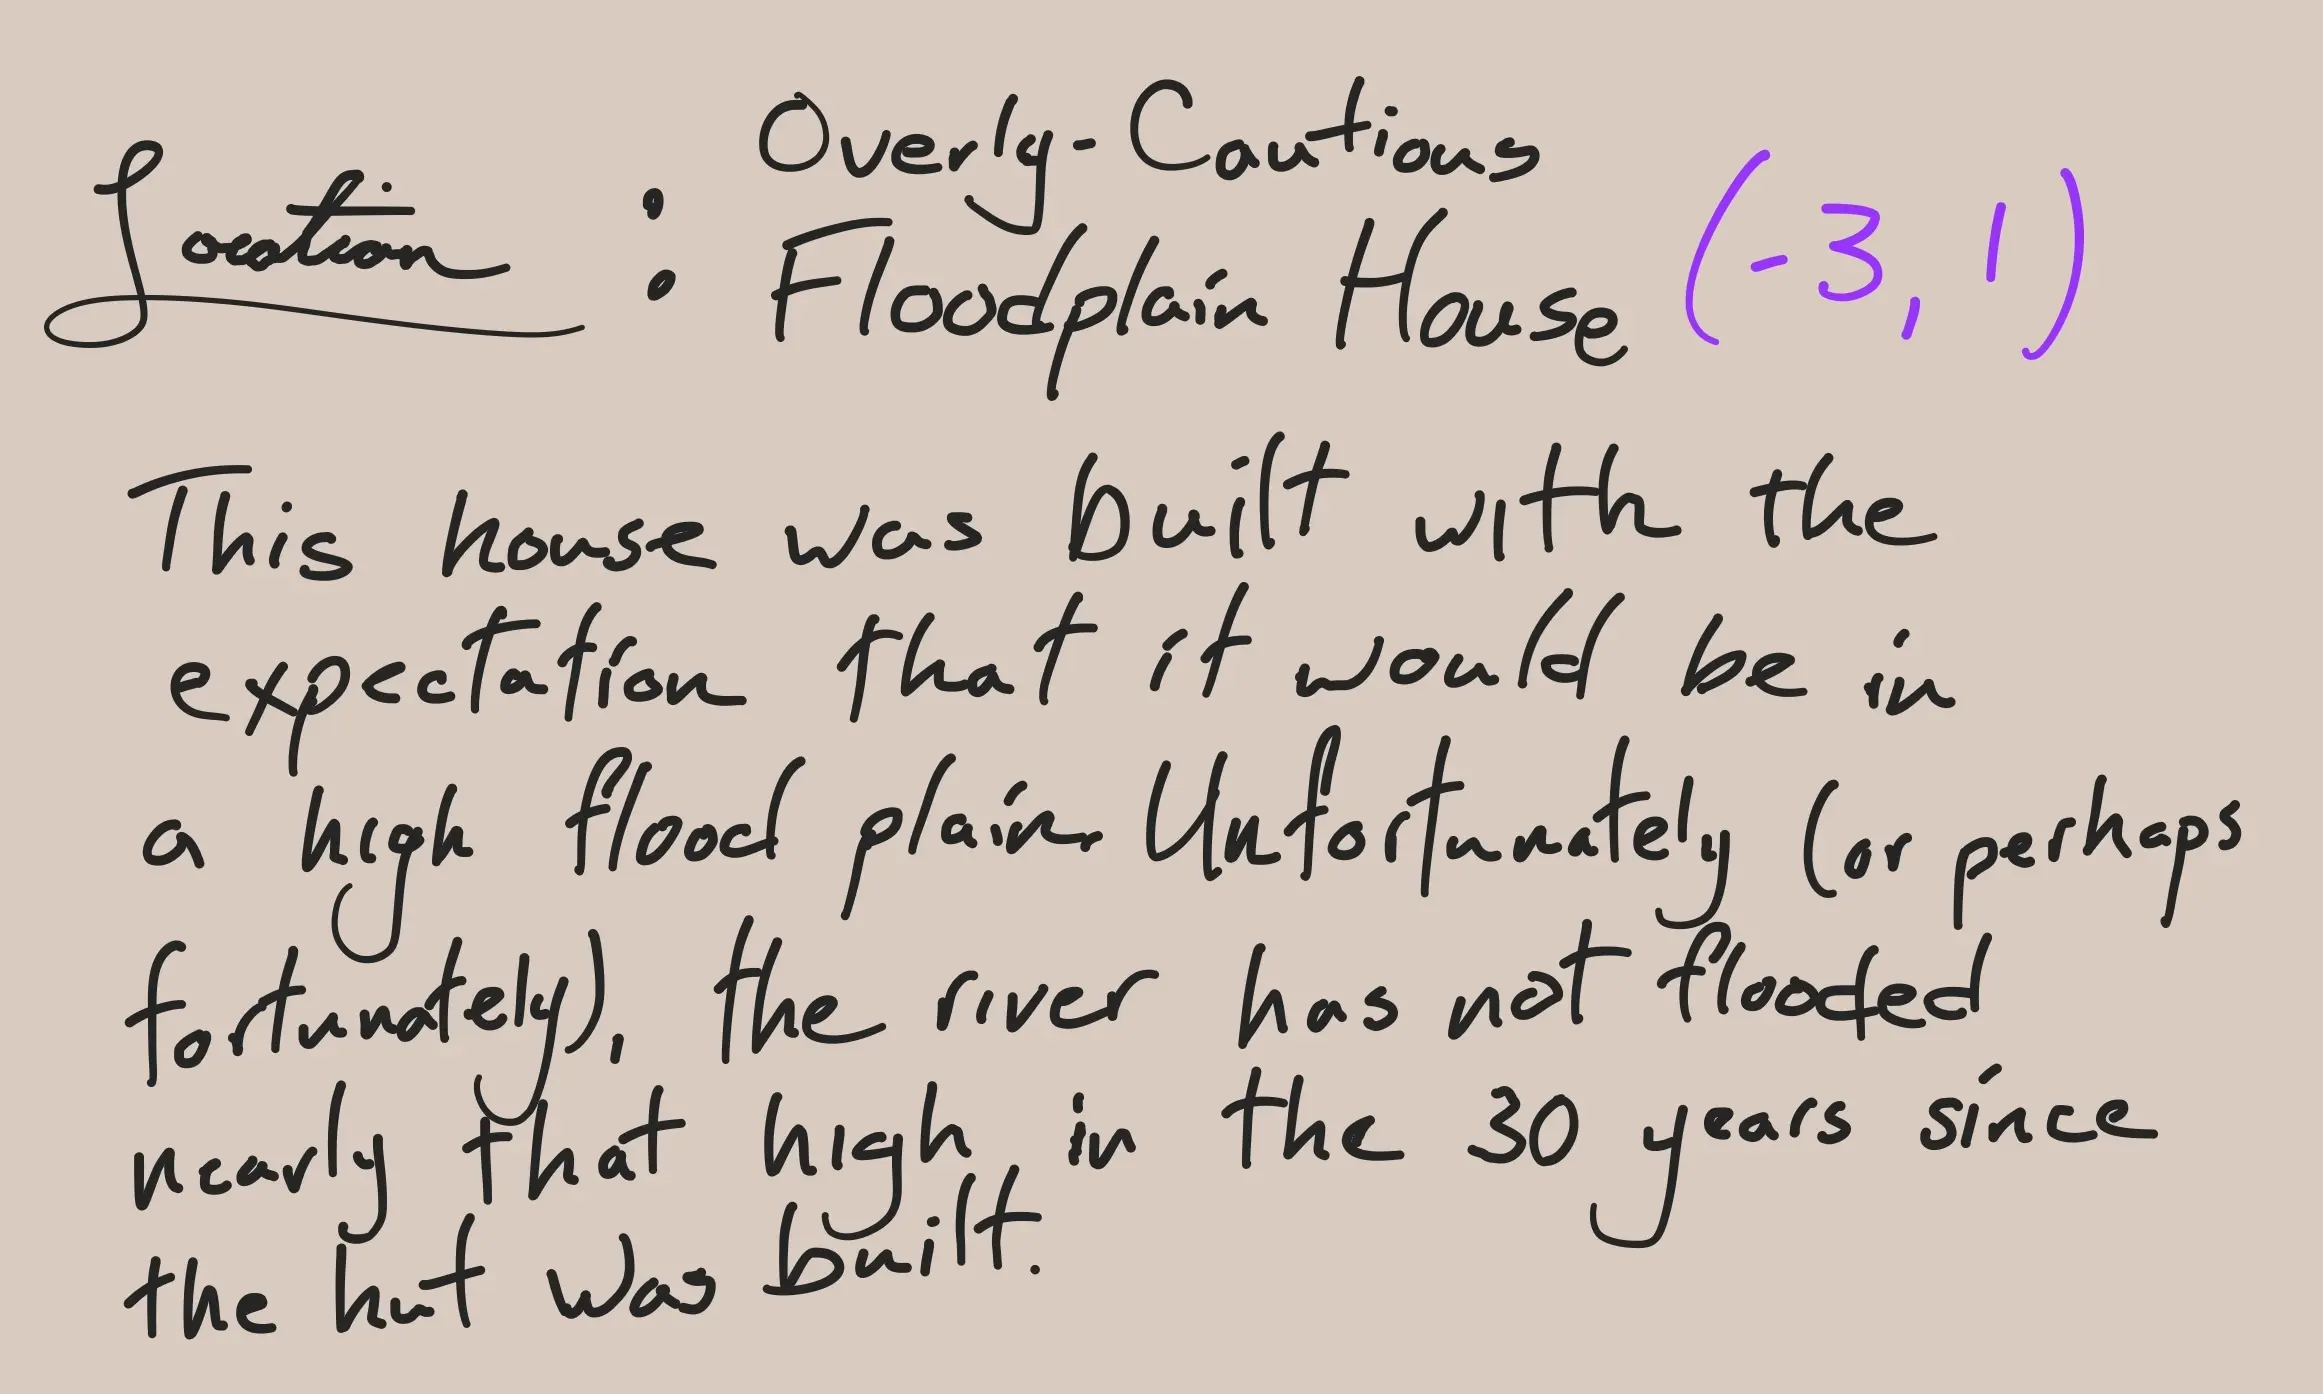 Location : Overly-Cautious
Floodplain House (-3, 1)
This house was built with the
expectation that it would be in
a high flood plain. Unfortunately (or perhaps
fortunately), the river has not flooded
nearly that high in the 30 years since
the hut was built.